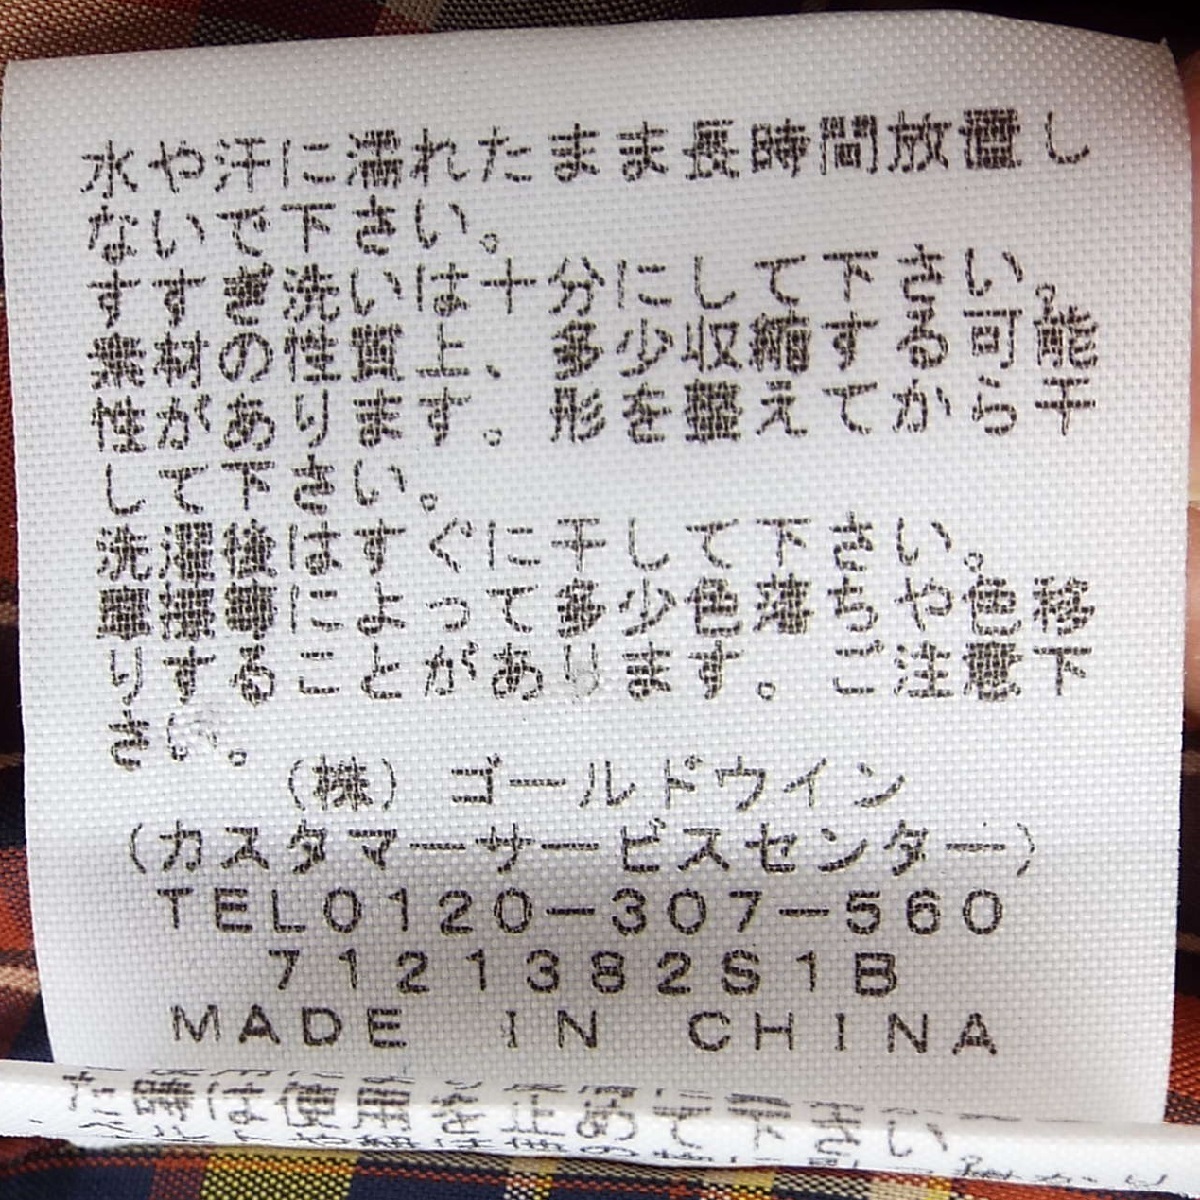 水や汗に濡れたまま長時間放置し
ないで下さい。
すすぎ洗いは十分にして下さい。
素材の性質上、多少収縮する可能
性があります。形を整えてから干
して下さい。
洗濯後はすぐに干して下さい。
摩擦等によって多少色落ちや色移
りすることがあります。ご注意下
さい。
(株)ゴールドウイン
(カスタマーサービスセンター)
TEL0120-307-560
7121382S1B
MADE IN CHINA
た時は使用を止めて下さい。